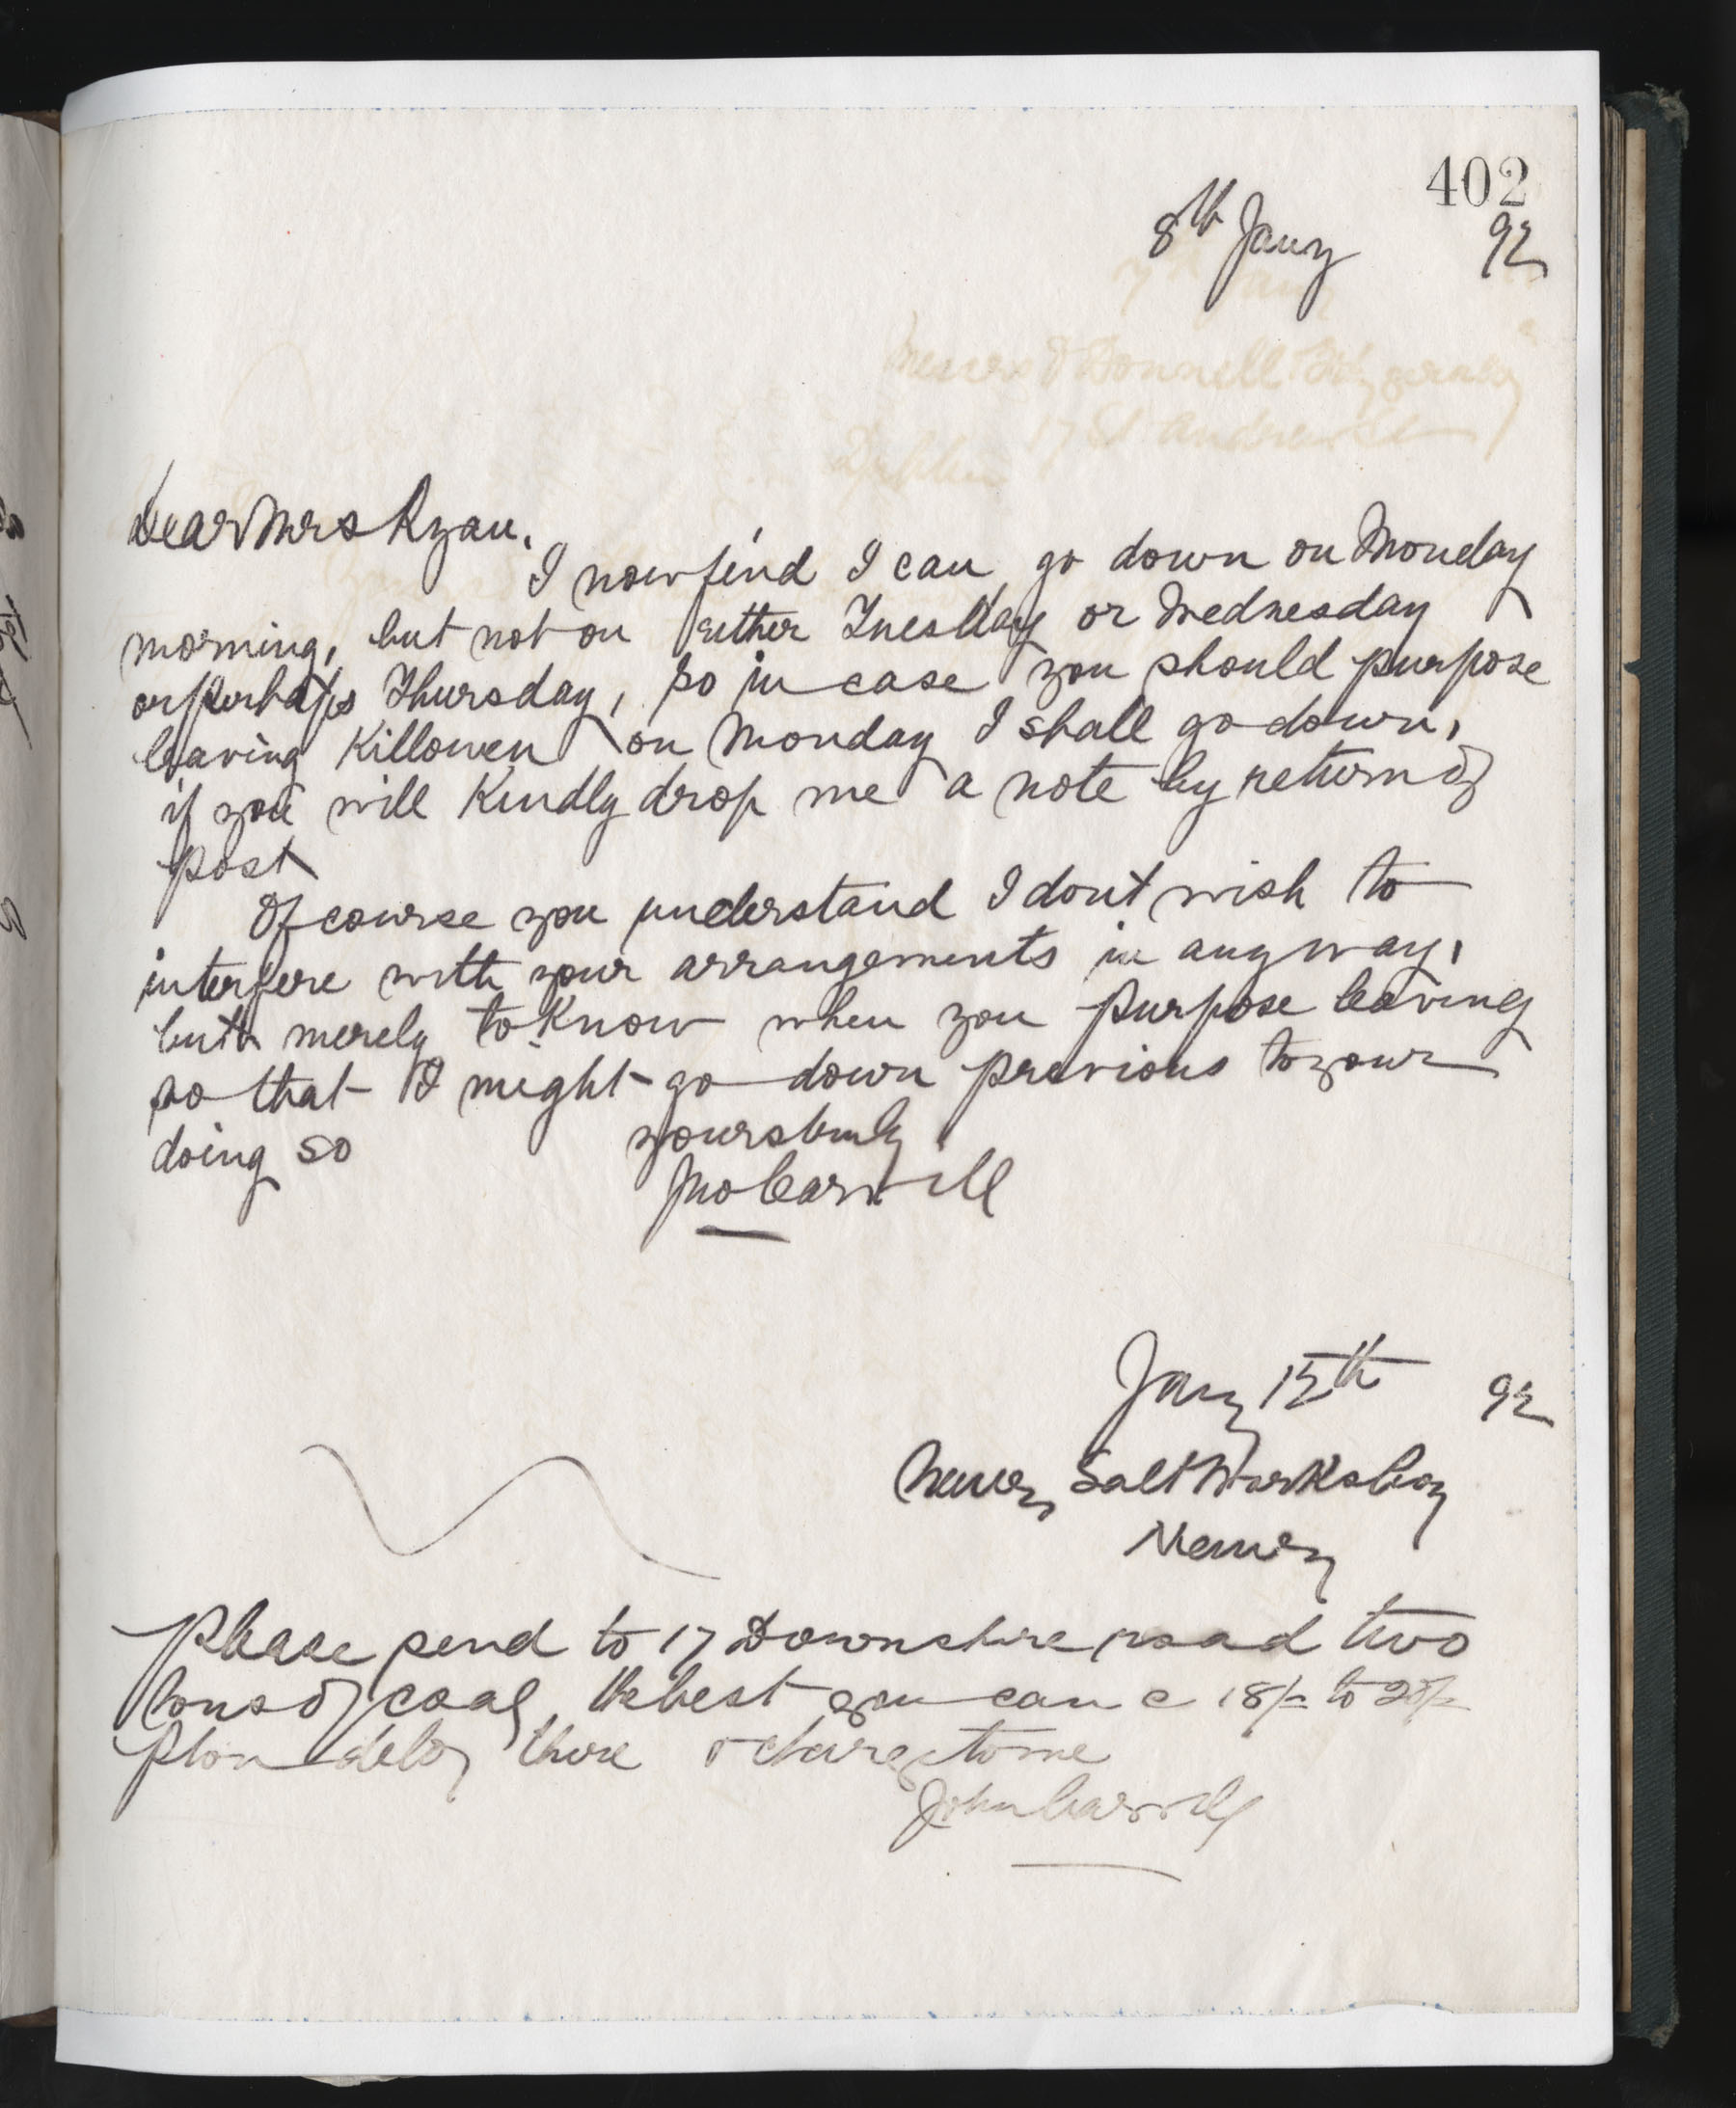 402
8th Jany 92
Dear Mrs Ryan,
I now find I can go down on Monday
morning, but not on either Tuesday or Wednesday
or perhaps Thursday, so in case you should purpose
leaving Killowen on Monday I shall go down,
if you will Kindly drop me a note by return of
post
Of course you understand I dont wish to
interfere with your arrangements in any way,
but merely to Know when you purpose leaving
so that I might go down previous to your
doing so
yours truly
Jno Carvill
Jany 12th 92
Newry Salt Works Coy
Newry
Please send to 17 Downshire road two
tons of coal, the best you can @ 18/- to 20/-
p ton dely there & charge to me
John Carvill